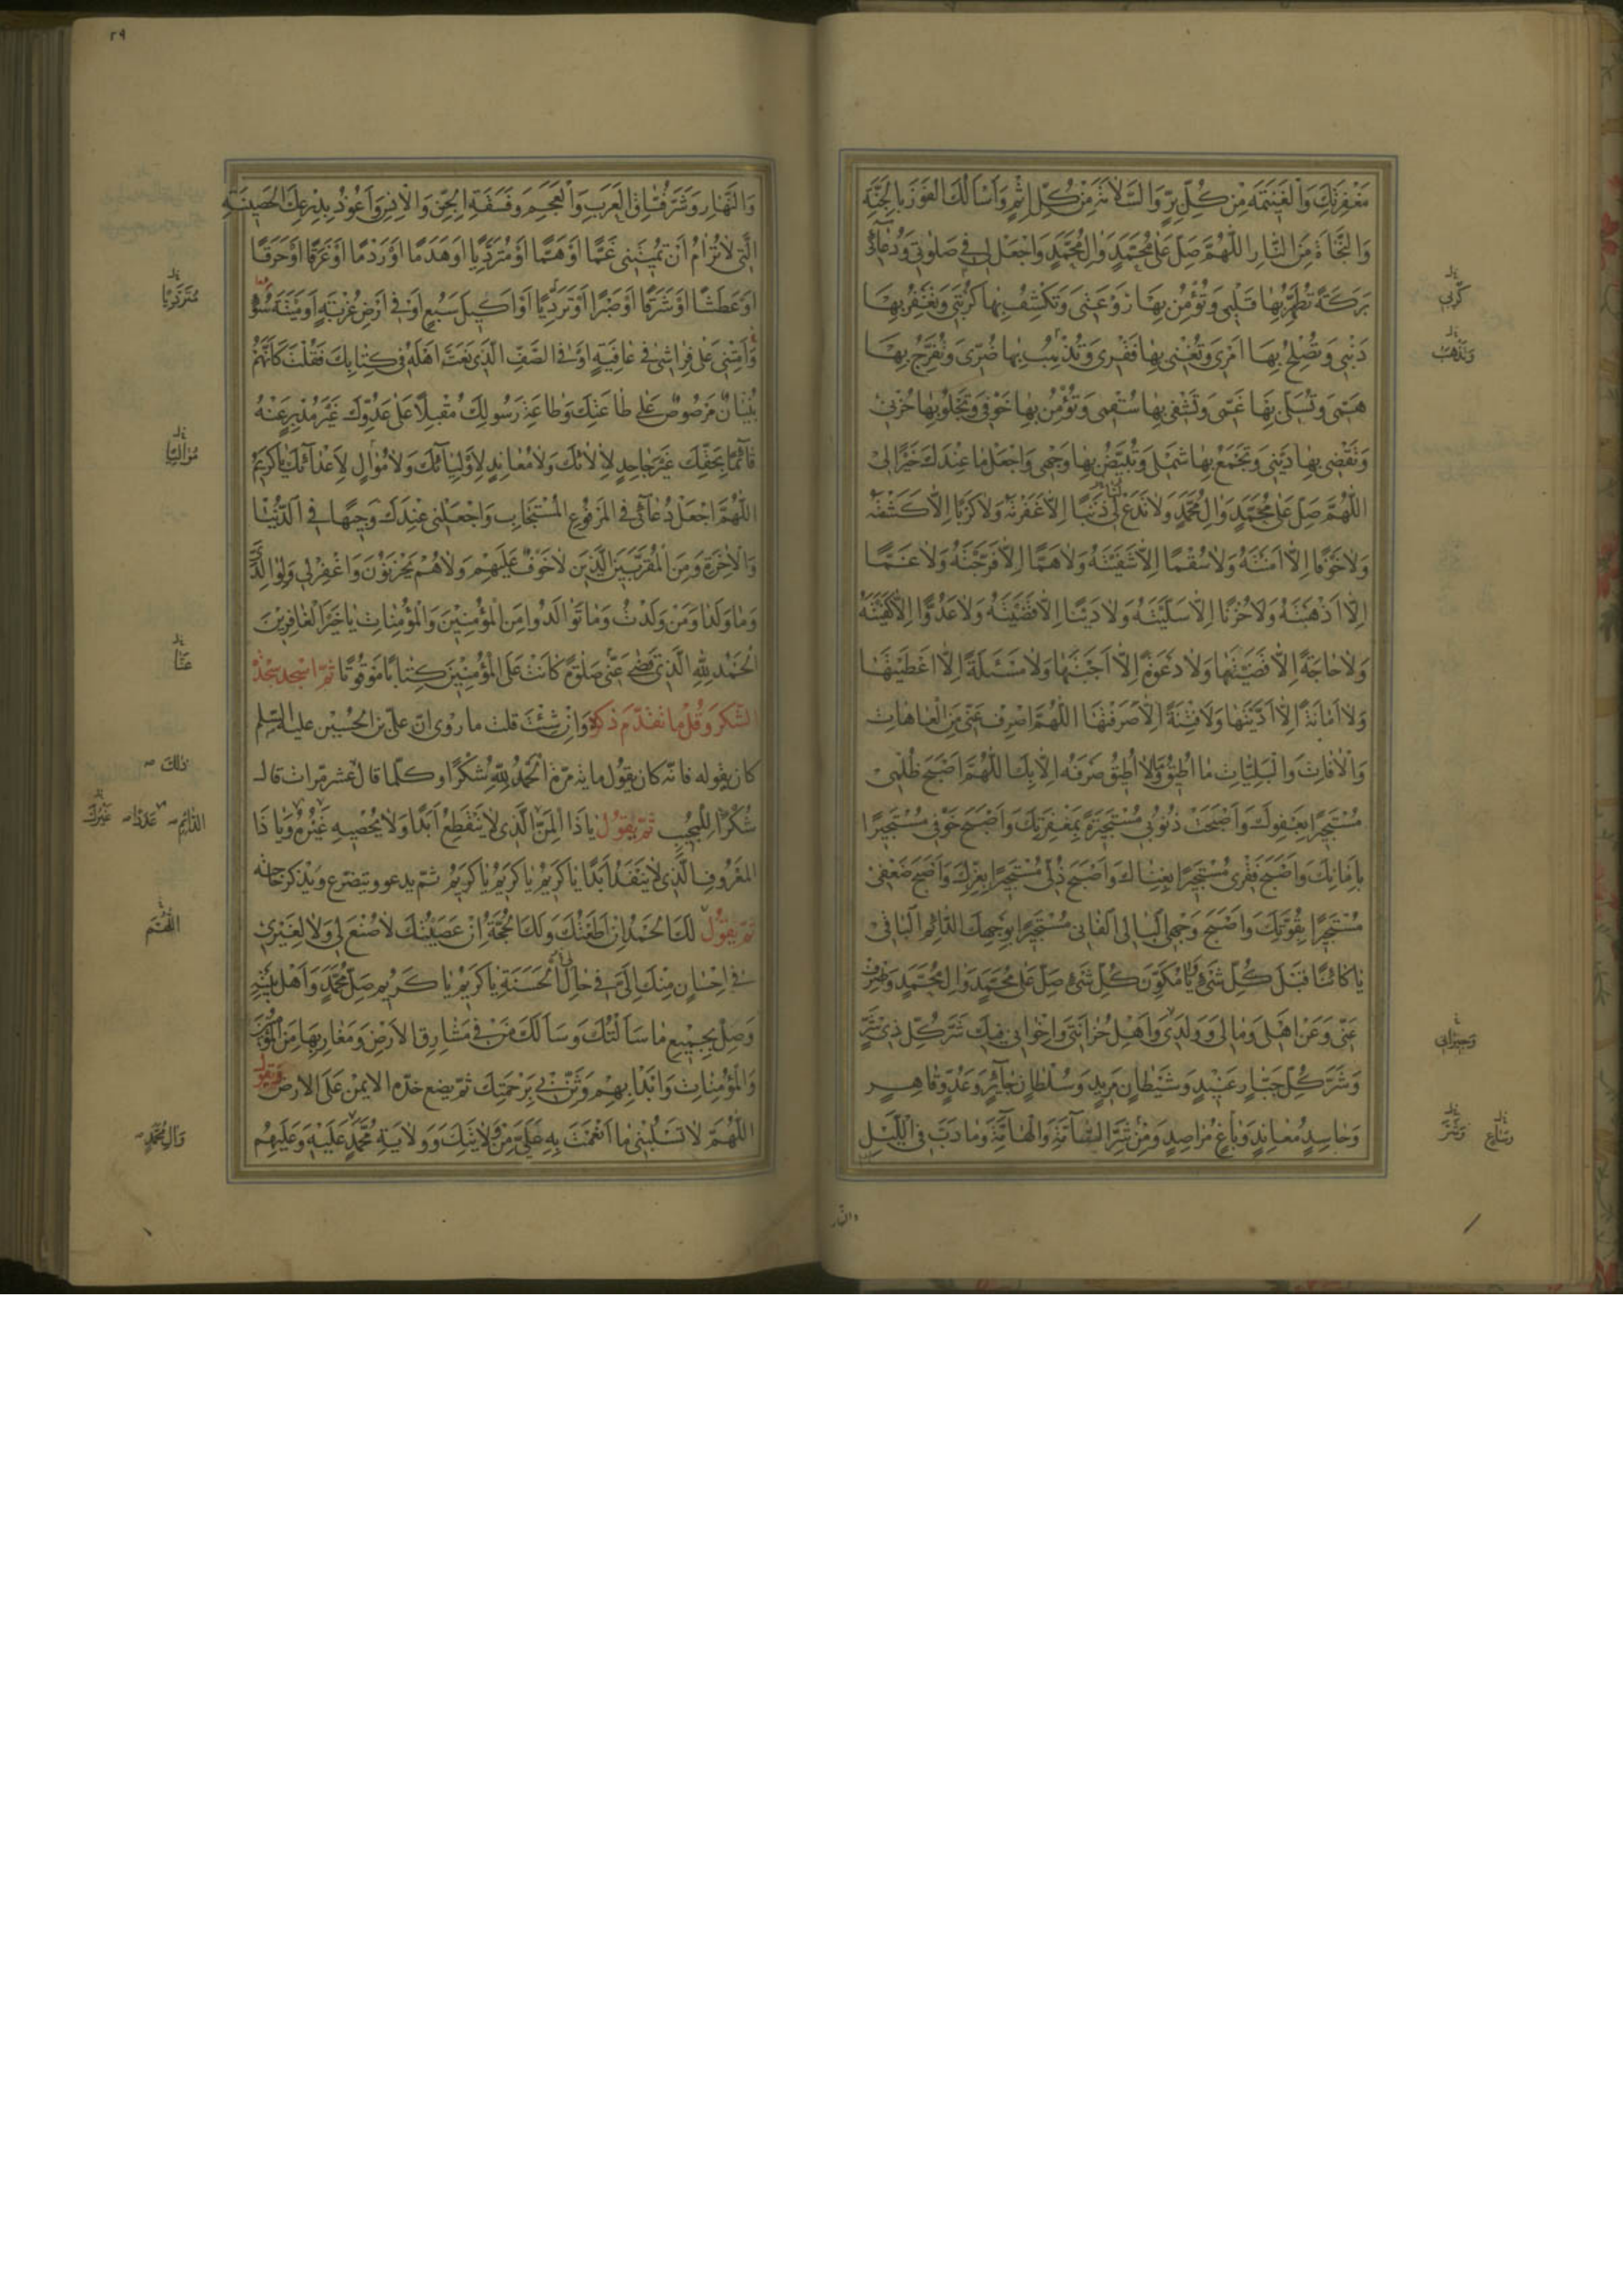 مَغْفِرَتِكَ وَالْغَنِيمَةَ مِنْ كُلِّ بِرٍّ وَالسَّلَامَةَ مِنْ كُلِّ اِثْمٍ وَاَسْاَلُكَ الْفَوْزَ بِالْجَنَّةِ
وَالنَّجَاةَ مِنَ النَّارِ اَللّٰهُمَّ صَلِّ عَلٰى مُحَمَّدٍ وَاٰلِ مُحَمَّدٍ وَاجْعَلْ لِى فِى صَلٰوتِى وَدُعَائِى
بَرَكَةً تُطَهِّرُ بِهَا قَلْبِى وَتُؤْمِنُ بِهَا رَوْعَتِى وَتَكْشِفُ بِهَا كُرْبَتِى وَتَغْفِرُ بِهَا
ذَنْبِى وَتُصْلِحُ بِهَا اَمْرِى وَتُغْنِى بِهَا فَقْرِى وَتُذْهِبُ بِهَا ضُرِّى وَتُفَرِّجُ بِهَا
هَمِّى وَتُسَلِّى بِهَا غَمِّى وَتَشْفِى بِهَا سُقْمِى وَتُؤْمِنُ بِهَا خَوْفِى وَتَجْلُو بِهَا حُزْنِى
وَتَقْضِى بِهَا دَيْنِى وَتَجْمَعُ بِهَا شَمْلِى وَتُبَيِّضُ بِهَا وَجْهِى وَاجْعَلْ مَا عِنْدَكَ خَيْرًا لِى
اَللّٰهُمَّ صَلِّ عَلٰى مُحَمَّدٍ وَاٰلِ مُحَمَّدٍ وَلَا تَدَعْ لِى ذَنْبًا اِلَّا غَفَرْتَهُ وَلَا كَرْبًا اِلَّا كَشَفْتَهُ
وَلَا خَوْفًا اِلَّا اٰمَنْتَهُ وَلَا سُقْمًا اِلَّا شَفَيْتَهُ وَلَا هَمًّا اِلَّا فَرَّجْتَهُ وَلَا غَمًّا
اِلَّا اَذْهَبْتَهُ وَلَا حُزْنًا اِلَّا سَلَّيْتَهُ وَلَا دَيْنًا اِلَّا قَضَيْتَهُ وَلَا عَدُوًّا اِلَّا كَفَيْتَهُ
وَلَا حَاجَةً اِلَّا قَضَيْتَهَا وَلَا دَعْوَةً اِلَّا اَجَبْتَهَا وَلَا مَسْئَلَةً اِلَّا اَعْطَيْتَهَا
وَلَا اَمَانَةً اِلَّا اَدَّيْتَهَا وَلَا فِتْنَةً اِلَّا صَرَفْتَهَا اَللّٰهُمَّ اصْرِفْ عَنِّى مِنَ الْعَاهَاتِ
وَالْاٰفَاتِ وَالْبَلِيَّاتِ مَا اُطِيقُ وَمَا لَا اُطِيقُ صَرْفَهُ اِلَّا بِكَ اَللّٰهُمَّ اَصْبَحَ ظُلْمِى
مُسْتَجِيرًا بِعَفْوِكَ وَاَصْبَحَتْ ذُنُوبِى مُسْتَجِيرَةً بِمَغْفِرَتِكَ وَاَصْبَحَ خَوْفِى مُسْتَجِيرًا
بِاَمَانِكَ وَاَصْبَحَ فَقْرِى مُسْتَجِيرًا بِغِنَاكَ وَاَصْبَحَ ذُلِّى مُسْتَجِيرًا بِعِزِّكَ وَاَصْبَحَ ضَعْفِى
مُسْتَجِيرًا بِقُوَّتِكَ وَاَصْبَحَ وَجْهِى الْبَالِى الْفَانِى مُسْتَجِيرًا بِوَجْهِكَ الدَّائِمِ الْبَاقِى
يَا كَائِنًا قَبْلَ كُلِّ شَىْءٍ وَيَا مُكَوِّنَ كُلِّ شَىْءٍ صَلِّ عَلٰى مُحَمَّدٍ وَاٰلِ مُحَمَّدٍ وَاصْرِفْ
عَنِّى وَعَنْ اَهْلِى وَمَالِى وَوَلَدِى وَاَهْلِ حُزَانَتِى وَاِخْوَانِى فِيكَ شَرَّ كُلِّ ذِى شَرٍّ
وَشَرَّ كُلِّ جَبَّارٍ عَنِيدٍ وَشَيْطَانٍ مَرِيدٍ وَسُلْطَانٍ جَائِرٍ وَعَدُوٍّ قَاهِرٍ
وَحَاسِدٍ مُعَانِدٍ وَبَاغٍ مُرَاصِدٍ وَمِنْ شَرِّ السَّامَّةِ وَالْهَامَّةِ وَمَا دَبَّ فِى اللَّيْلِ
كَرْبِى
وَتُذْهِبُ
وَجِيرَانِى
والنهار
٢٩
وَالنَّهَارِ وَشَرِّ فُسَّاقِ الْعَرَبِ وَالْعَجَمِ وَفَسَقَةِ الْجِنِّ وَالْاِنْسِ وَاَعُوذُ بِدِرْعِكَ الْحَصِينَةِ
الَّتِى لَا تُرَامُ اَنْ تُمِيتَنِى غَمًّا اَوْ هَمًّا اَوْ مُتَرَدِّيًا اَوْ هَدَمًا اَوْ رَدْمًا اَوْ غَرَقًا اَوْ حَرَقًا
اَوْ عَطَشًا اَوْ شَرَقًا اَوْ صَبْرًا اَوْ تَرَدِّيًا اَوْ اَكِيلَ سَبُعٍ اَوْ فِى اَرْضِ غُرْبَةٍ اَوْ مِيتَةَ سُوْءٍ
وَاَمِتْنِى عَلٰى فِرَاشِى فِى عَافِيَةٍ اَوْ فِى الصَّفِّ الَّذِى نَعَتَّ اَهْلَهُ فِى كِتَابِكَ فَقُلْتَ كَاَنَّهُمْ
بُنْيَانٌ مَرْصُوصٌ عَلٰى طَاعَتِكَ وَطَاعَةِ رَسُولِكَ مُقْبِلًا عَلٰى عَدُوِّكَ غَيْرَ مُدْبِرٍ عَنْهُ
قَائِمًا بِحَقِّكَ غَيْرَ جَاحِدٍ لِاٰلَائِكَ وَلَا مُعَانِدٍ لِاَوْلِيَائِكَ وَلَا مُوَالٍ لِاَعْدَائِكَ يَا كَرِيمُ
اَللّٰهُمَّ اجْعَلْ دُعَائِى فِى الْمَرْفُوعِ الْمُسْتَجَابِ وَاجْعَلْنِى عِنْدَكَ وَجِيهًا فِى الدُّنْيَا
وَالْاٰخِرَةِ وَمِنَ الْمُقَرَّبِينَ الَّذِينَ لَا خَوْفٌ عَلَيْهِمْ وَلَا هُمْ يَحْزَنُونَ وَاغْفِرْ لِى وَلِوَالِدَىَّ
وَمَا وَلَدَا وَمَنْ وَلَدْتُ وَمَا تَوَالَدُوا مِنَ الْمُؤْمِنِينَ وَالْمُؤْمِنَاتِ يَا خَيْرَ الْغَافِرِينَ
اَلْحَمْدُ لِلّٰهِ الَّذِى قَضٰى عَنِّى صَلٰوةً كَانَتْ عَلَى الْمُؤْمِنِينَ كِتَابًا مَوْقُوتًا ثُمَّ اسْجُدْ سَجْدَةَ
الشُّكْرِ وَقُلْ مَا تَقَدَّمَ ذِكْرُهُ وَاِنْ شِئْتَ قلت ما روى انّ علىّ بن الحسين عليه السّلم
كان يقوله فانّه كان يقول مائة مرّة اَلْحَمْدُ لِلّٰهِ شُكْرًا وكلّما قال عشر مرّات قال
شُكْرًا لِلْمُجِيبِ ثُمَّ يَقُولُ يَا ذَا الْمَنِّ الَّذِى لَا يَنْقَطِعُ اَبَدًا وَلَا يُحْصِيهِ غَيْرُهُ وَيَا ذَا
الْمَعْرُوفِ الَّذِى لَا يَنْفَدُ اَبَدًا يَا كَرِيمُ يَا كَرِيمُ يَا كَرِيمُ ثمّ يدعو ويتضرّع ويذكر حاجته
ثُمَّ يَقُولُ لَكَ الْحَمْدُ اِنْ اَطَعْتُكَ وَلَكَ الْحُجَّةُ اِنْ عَصَيْتُكَ لَا صُنْعَ لِى وَلَا لِغَيْرِى
فِى اِحْسَانٍ مِنْكَ اِلَىَّ فِى حَالِ الْحَسَنَةِ يَا كَرِيمُ يَا كَرِيمُ صَلِّ مُحَمَّدٍ وَاَهْلِ بَيْتِهِ
وَصِلْ بِجَمِيعِ مَا سَاَلْتُكَ وَسَاَلَكَ مَنْ فِى مَشَارِقِ الْاَرْضِ وَمَغَارِبِهَا مِنَ الْمُؤْمِنِينَ
وَالْمُؤْمِنَاتِ وَابْدَأْ بِهِمْ وَثَنِّ بِى بِرَحْمَتِكَ ثمّ يضع خدّه الايمن على الارض وَيَقُولُ
اَللّٰهُمَّ لَا تَسْلُبْنِى مَا اَنْعَمْتَ بِهِ عَلَىَّ مِنْ وِلَايَتِكَ وَوِلَايَةِ مُحَمَّدٍ عَلَيْهِ وَعَلَيْهِمُ
ذلك
الدَّائِمِ
عَدَدًا
غَيْرُكَ
اَللّٰهُمَّ
وَاٰلِ مُحَمَّدٍ